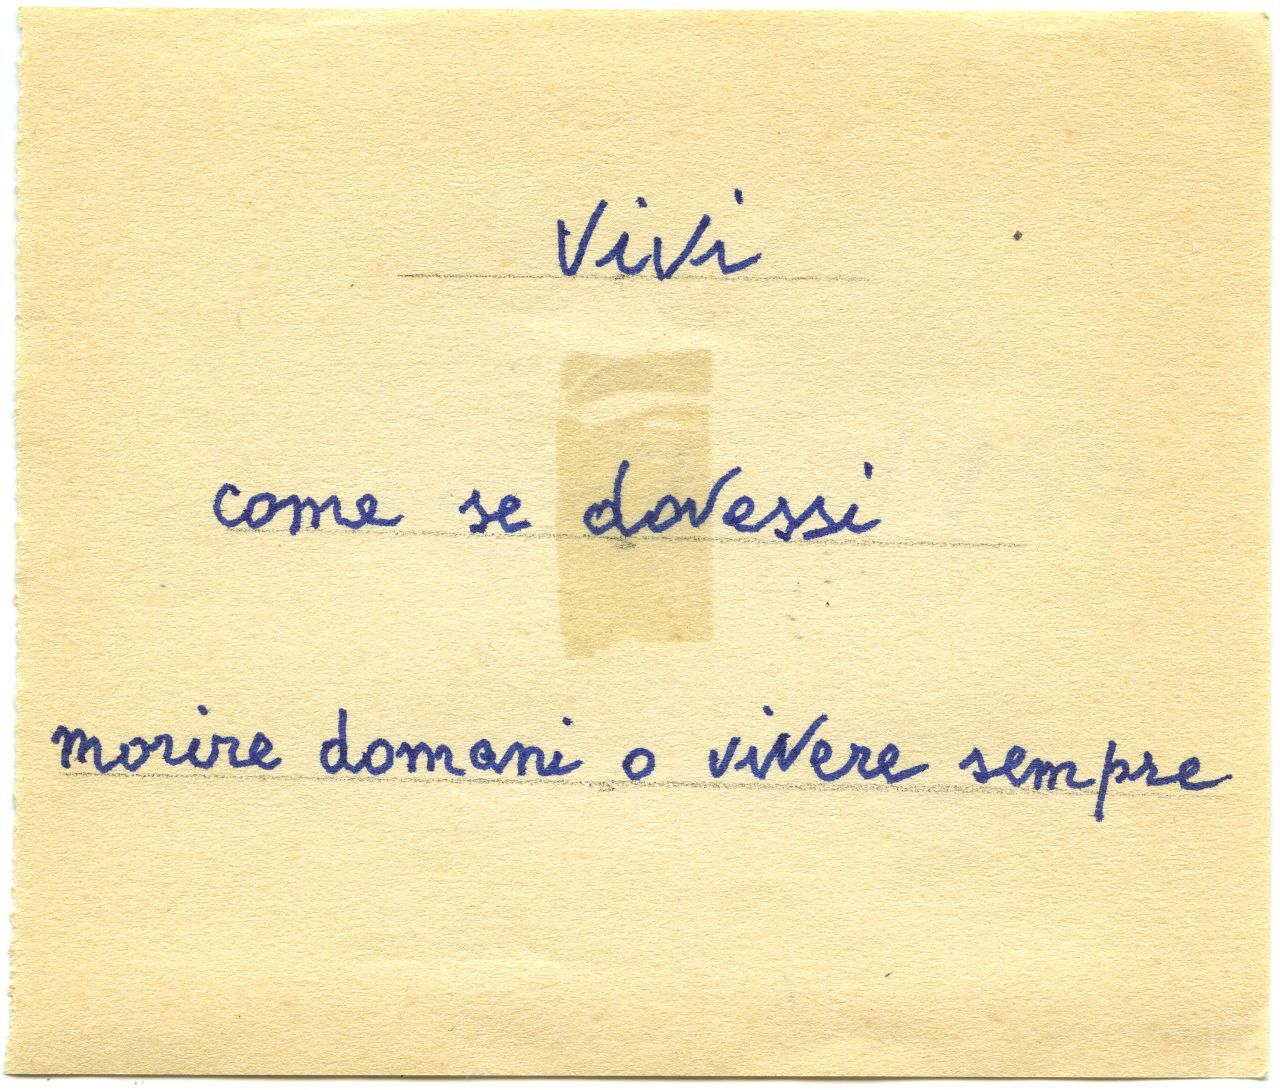 Vivi
come se dovessi
morire domani o vivere sempre